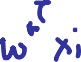 w*ᵀ xi